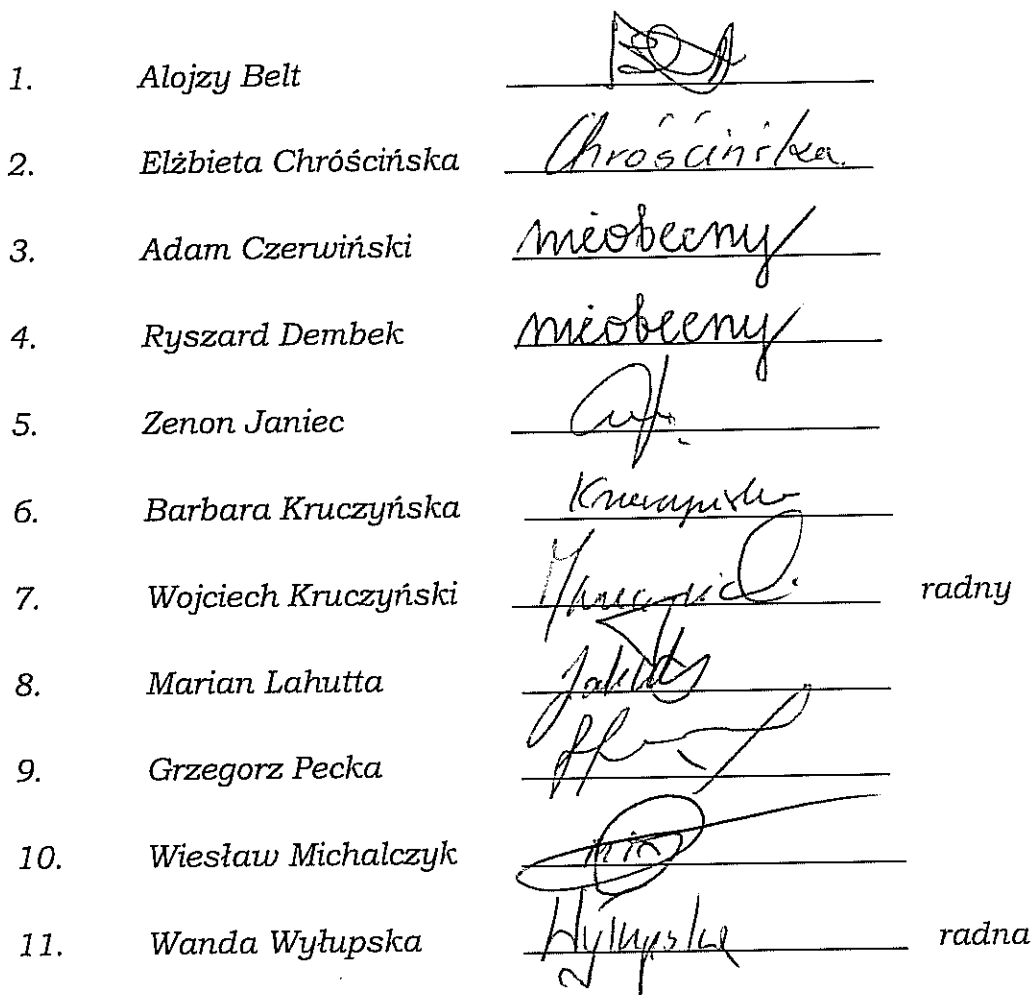 1. Alojzy Belt
2. Elżbieta Chróścińska Chróścińska
3. Adam Czerwiński nieobecny
4. Ryszard Dembek nieobecny
5. Zenon Janiec
6. Barbara Kruczyńska
7. Wojciech Kruczyński radny
8. Marian Lahutta
9. Grzegorz Pecka
10. Wiesław Michalczyk
11. Wanda Wyłupska Wyłupska radna